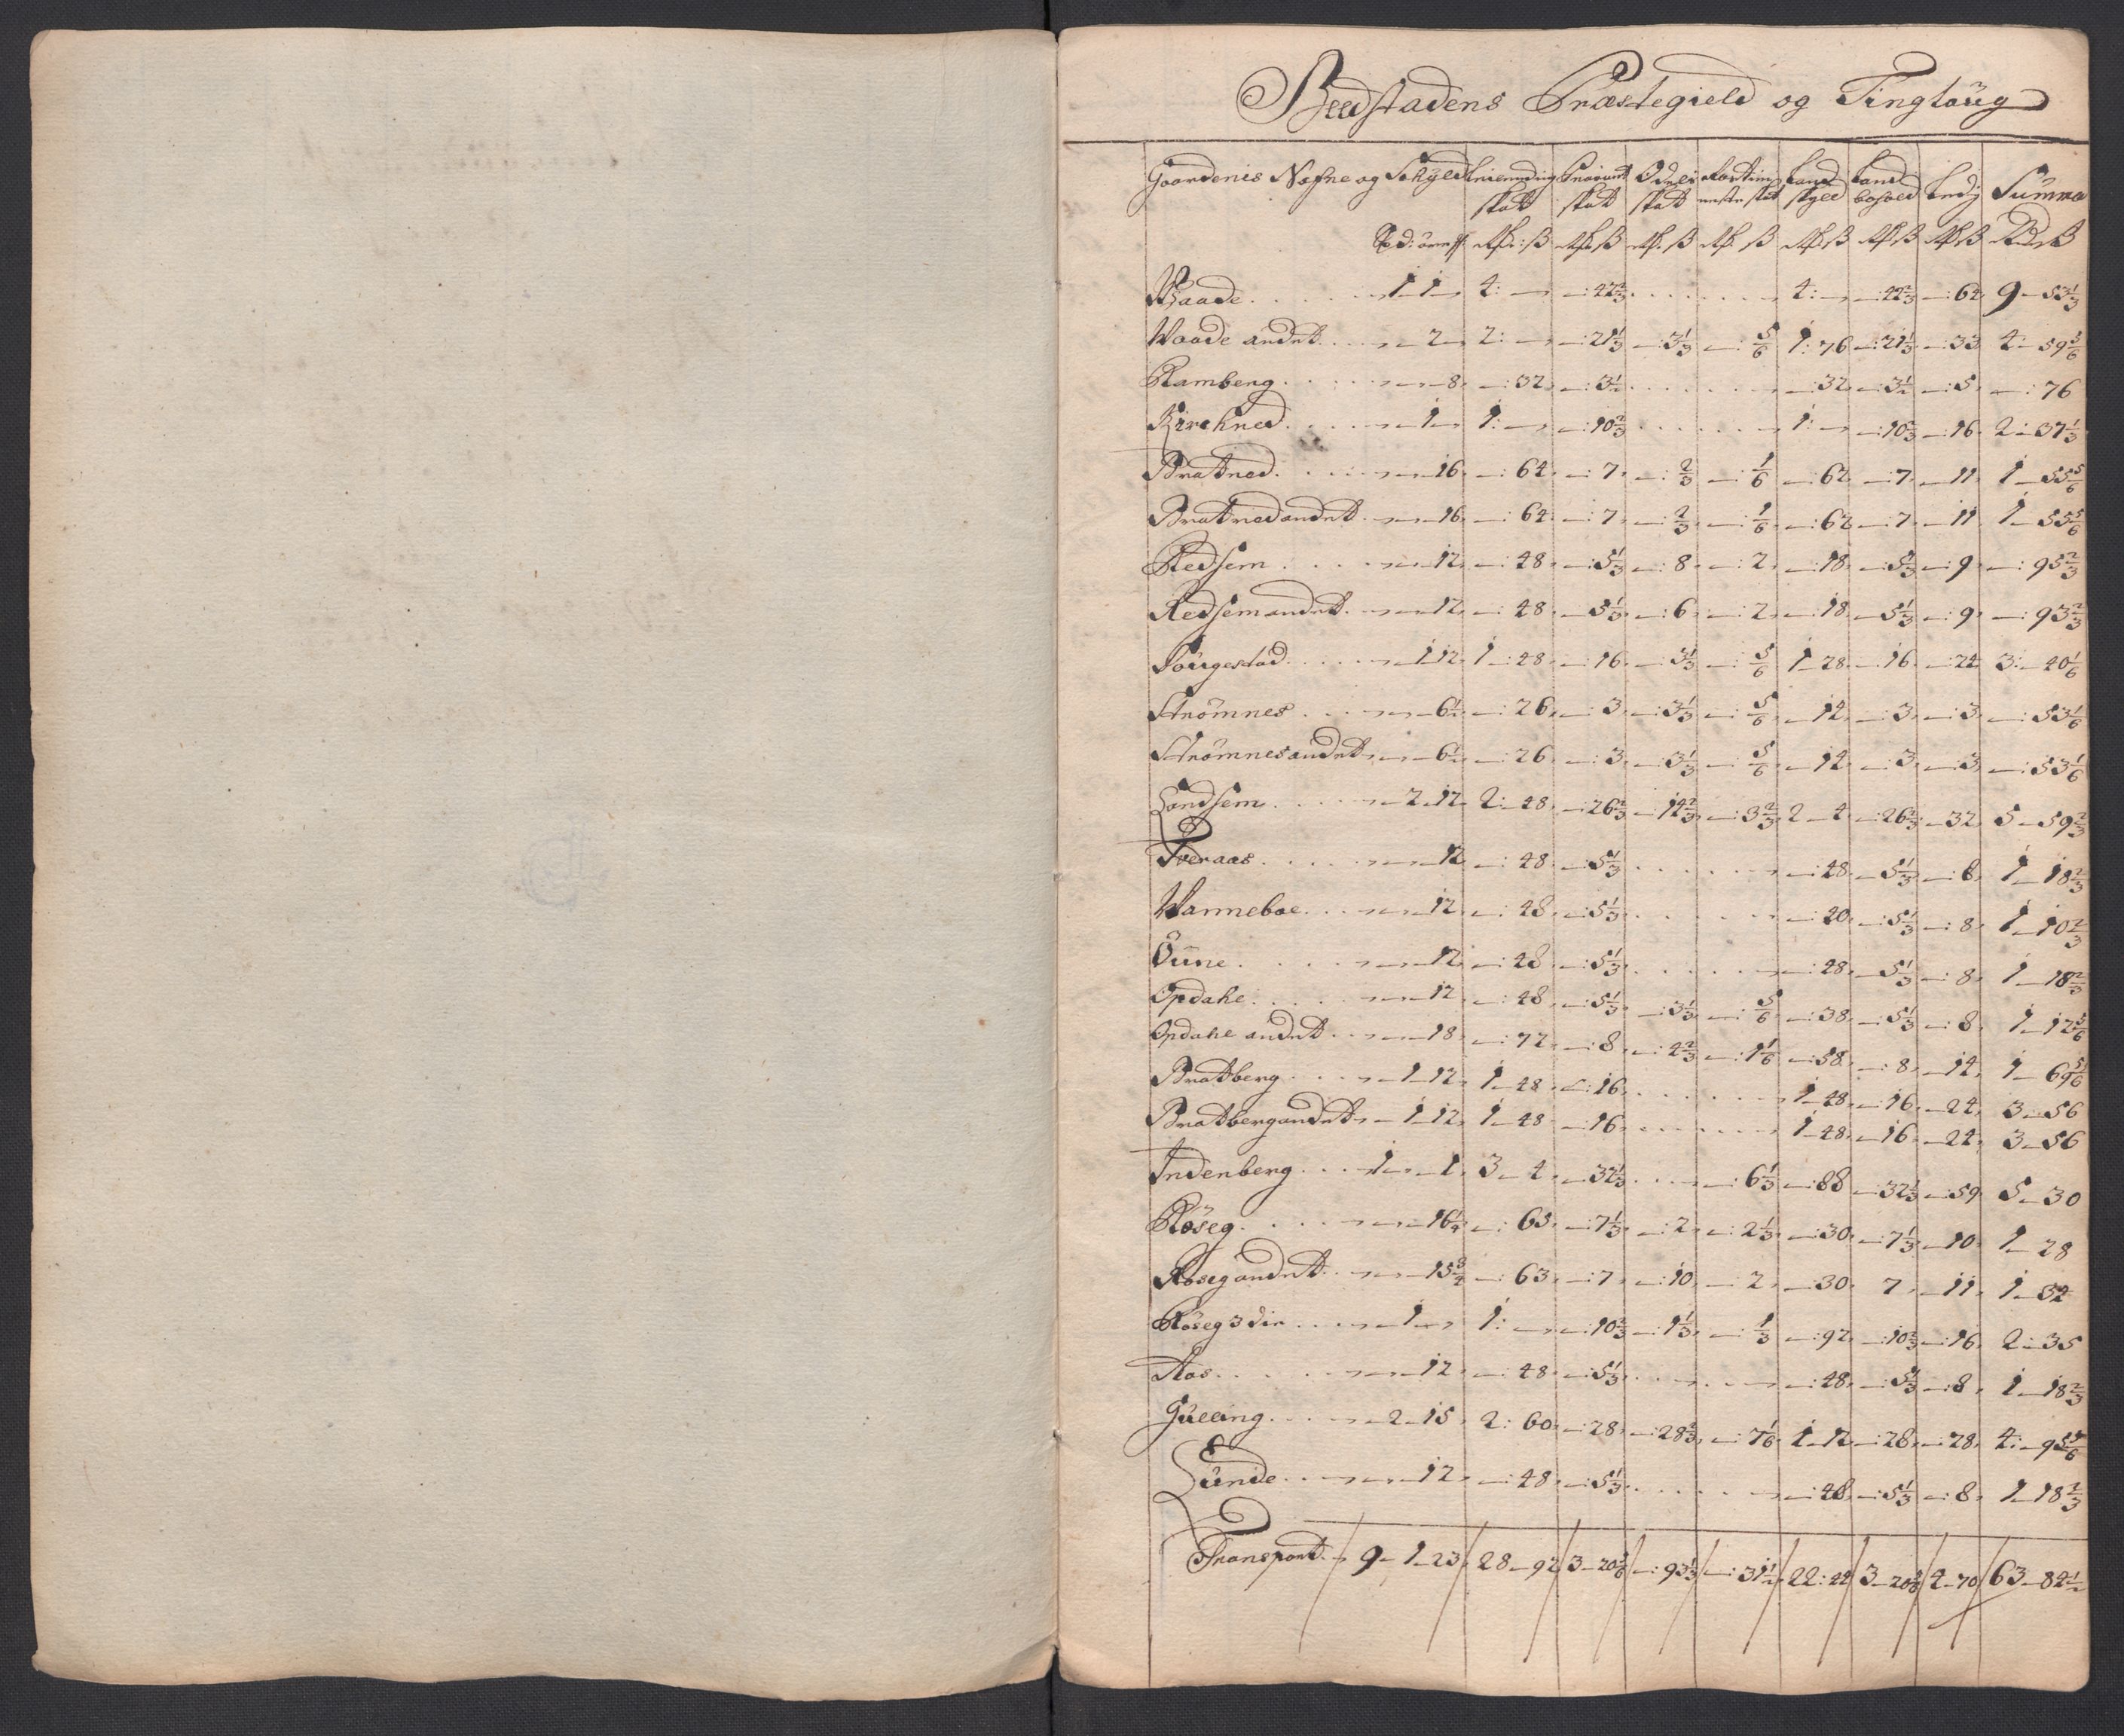 Beedstadens Præstegield og Tingloüg
Gaardenes Nafne og Schyld skatt Proviant skatt Odels skatt skatt Land skyld Land bohold Ledig Summa
Waade 1 1 4: — —:42 2/3 4: — —:42 2/3 —:64 9—53 1/3
Waade andet 2 2: — —:21 1/3 —:3 1/3 —: 5/6 1:76 —:21 1/3 —:33 4—59 5/6
Ramberg 8 —:32 —:3 1/2 —:32 —:3 1/2 —:5 —:76
Kirckned 1 1: — —:10 2/3 1: — —:10 2/3 —:16 2:37 1/3
Bratned 16 —:64 —:7 —: 2/3 —: 1/6 —:62 —7 —11 1—55 5/6
Bratned andet 16 —:64 —:7 —: 2/3 —: 1/6 —:62 —:7 —11 1—55 5/6
Redsem 12 —:48 —:5 1/3 —:8 —:2 —:18 —:5 1/3 —:9 —:95 2/3
Redsem andet 12 —:48 —:5 1/3 —:6 —:2 —:18 —:5 1/3 —:9 —:93 2/3
Sougestad 1 12 1—:48 —:16 —:3 1/3 —: 5/6 1—28 —:16 —:24 3:—40 1/6
Strömnes 6 1/2 —:26 —:3 —:3 1/3 —: 5/6 —14 —:3 —:3 —:53 1/6
Strömnes andet 6 1/2 —:26 —:3 —:3 1/3 —: 5/6 —14 —:3 —:3 —:53 1/6
Landsem 2 12 2:—48 —:26 2/3 —:14 2/3 —:3 2/3 2—4 —:26 2/3 —32 5—59 2/3
Tveraas 12 —:48 —:5 1/3 —:48 —:5 1/3 —:8 1—18 2/3
Wanneboe 12 —:48 —:5 1/3 —:40 —:5 1/3 —:8 1—10 2/3
Öüne 12 —:48 —:5 1/3 —:48 —5 1/3 —:8 1—18 2/3
Opdahl 12 —:48 —:5 1/3 —:3 1/3 —: 5/6 —:38 —:5 1/3 —:8 1—12 5/6
Opdahl andet 18 —:72 —:8 —:4 2/3 —:1 1/6 —:58 —:8 —14 1—69 5/6
Bratberg 1 12 1—48 —:16 1—48 —:16 —24 3—56
Bratberg andet 1 12 1—48 —16 1—48 —16 —24 3—56
Indenberg 1 — 1 3—4 —32 1/3 —:6 1/3 —:88 —32 1/3 —:59 5—30
Röseg 16 1/4 —:65 —:7 1/3 —:2 —:2 1/3 —:30 —:7 1/3 —10 1—28
Röseg andet 15 3/4 —:63 —:7 —:10 —2 —:30 7 —11 1—34
Röseg 3die 1 1: — —:10 2/3 —:1 1/3 —: 1/3 —:92 —:10 2/3 —:16 2:—35
Aas 12 —:48 —:5 1/3 —:48 —:5 1/3 —:8 1—18 2/3
Gulling 2 15 2:60 —:28 —:28 2/3 —:7 1/6 1—12 —28 —:28 4:—95 5/6
Lünde 12 —:48 —:5 1/3 —:48 —:5 1/3 —:8 1—18 2/3
Transport 9—1—23 28—92 3—20 5/6 —:93 1/3 —:31 1/2 22:44 3—20 5/6 4—70 63—84 1/2